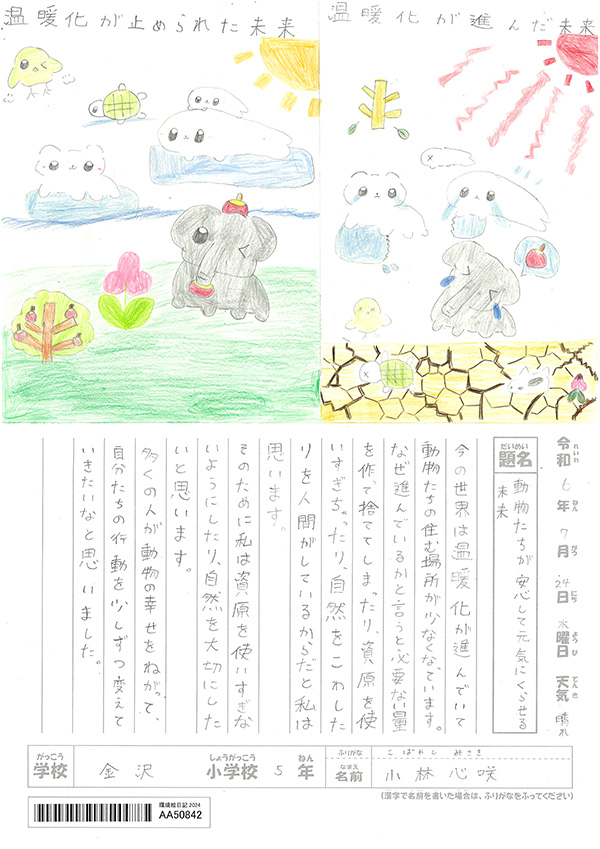 温暖化が止められた未来
温暖化が進んだ未来
令和6年7月24日水曜日 天気 晴れ
れいわ ねん がつ にち ようび てんき
だいめい
題名
動物たちが安心して元気にくらせる
未来
今の世界は温暖化が進んでいて
動物たちの住む場所が少なくなっています。
なぜ進んでいるかと言うと必要ない量
を作って捨ててしまったり、資原を使
いすぎちゃったり、自然をこわした
りを人間がしているからだと私は
思います。
そのために私は資原を使いすぎな
いようにしたり、自然を大切にした
いと思います。
多くの人が動物の幸せをねがって、
自分たちの行動を少しずつ変えて
いきたいなと思いました。
がっこう しょうがっこう ねん
学校 金沢 小学校 5年
ふりがな こばやし みさき
なまえ
名前 小林心咲
(漢字で名前を書いた場合は、ふりがなをふってください)
環境絵日記2024
AA50842